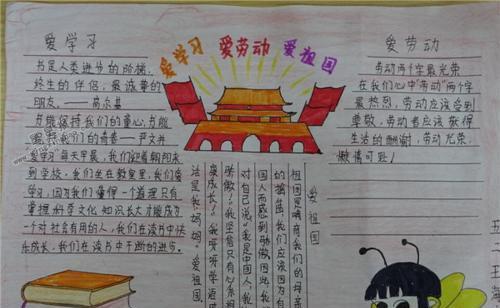 爱学习
书是人类进步的阶梯,
终生的伴侣,最诚挚的
朋友。——高尔基
书能保持我们的童心,书能
我们的青春——严文井
"爱学习"每天早晨,我们迎着朝阳来
到学校,我们坐在教室里,我们爱
学习,因为我们懂得一个道理只有
掌握科学文化知识长大才能成为
一个对社会有用的人,我们在读书中快
乐成长,我们在读书中不断的进步。
爱学习 爱劳动 爱祖国
爱劳动
劳动两个字最光荣
在我们心中"劳动"两个字
最热烈,劳动应该受到
尊敬,劳动者应该获得
生活的酬谢,劳动光荣,
懒惰可耻!
爱祖国
祖国是哺育我们的母亲
的摇篮,我们应该因为自
国人而感到骄傲。因此,我
对自己说"我是中国人,我
骄傲"!我坚信只有
康成长!我呀呀学语
法是我妈妈"爱祖国
五